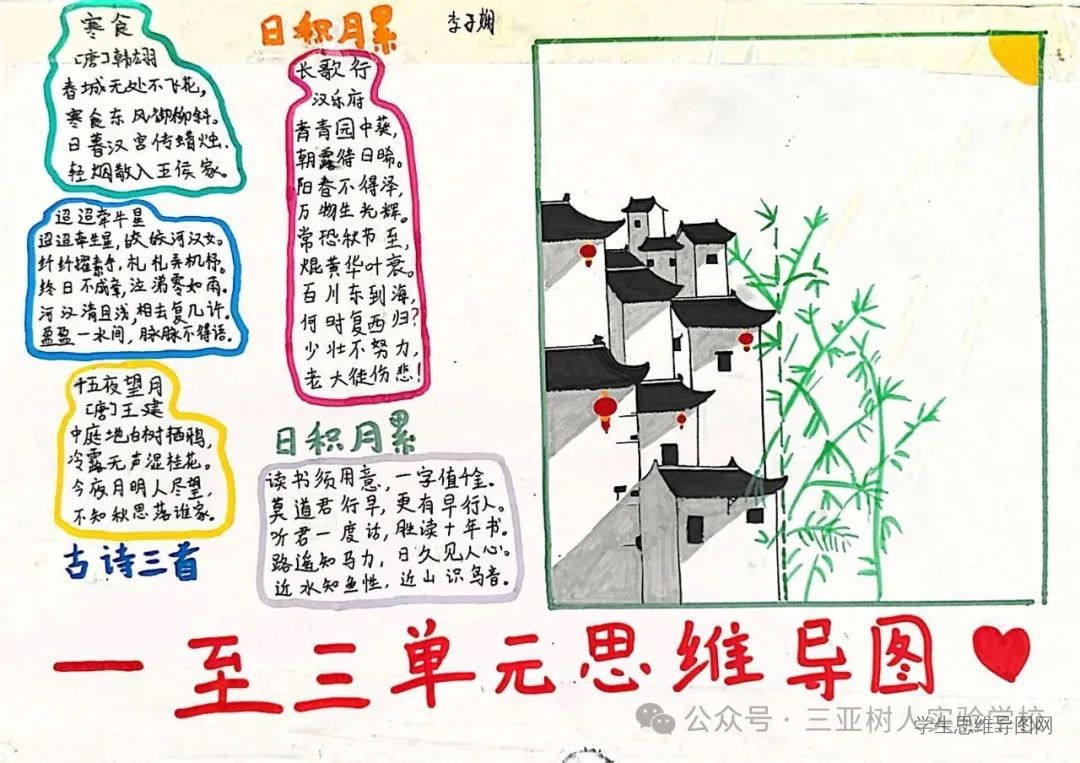 寒食
[唐]韩翃
春城无处不飞花,
寒食东风御柳斜。
日暮汉宫传蜡烛.
轻烟散入五侯家。
迢迢牵牛星
迢迢牵牛星,皎皎河汉女。
纤纤擢素手,札札弄机杼。
终日不成章,泣涕零如雨。
河汉清且浅,相去复几许。
盈盈一水间,脉脉不得语。
十五夜望月
[唐]王建
中庭地白树栖鸦,
冷露无声湿桂花。
今夜月明人尽望,
不知秋思落谁家。
古诗三首
日积月累
长歌行
汉乐府
青青园中葵,
朝露待日晞。
阳春不得泽,
万物生光辉。
常恐秋节至,
焜黄华叶衰。
百川东到海,
何时复西归?
少壮不努力,
老大徒伤悲!
日积月累
读书须用意,一字值千金。
莫道君行早,更有早行人。
听君一度话,胜读十年书。
路遥知马力,日久见人心。
近水知鱼性,近山识鸟音。
李子娴
一至三单元思维导图
公众号·三亚树人实验学校
学生思维导图网